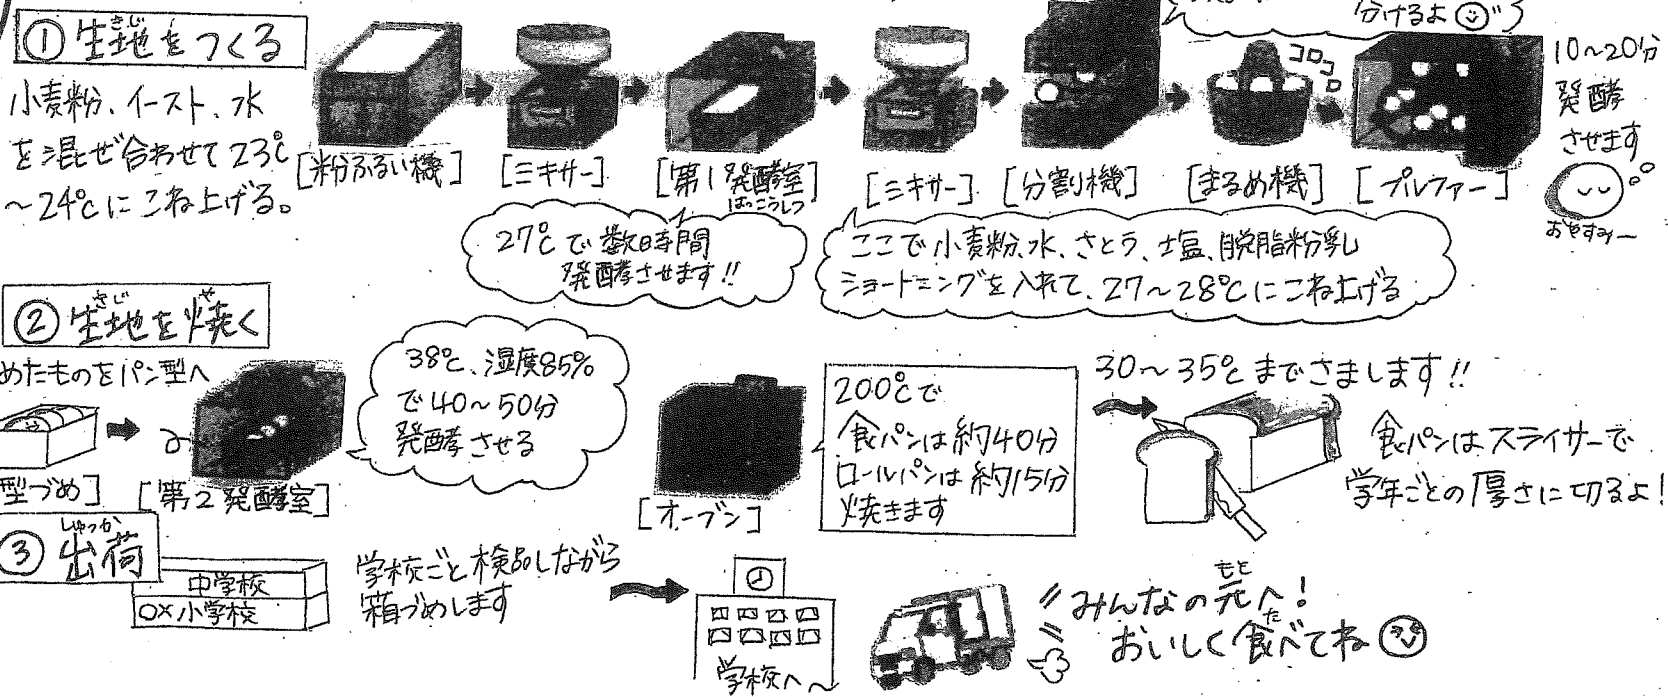 分けるよ
① 生地をつくる
きじ
小麦粉、イースト、水
を混ぜ合わせて23℃
～24℃にこね上げる。
[粉ふるい機]
[ミキサー]
[第1発酵室]
はっこうしつ
[ミキサー]
[分割機]
コロコロ
[まるめ機]
[プルファー]
10～20分
発酵
させます
おやすみー
27℃で数時間
発酵させます!!
ここで小麦粉、水、さとう、塩、脱脂粉乳
ショートニングを入れて、27～28℃にこね上げる
② 生地を焼く
きじ
や
めたものをパン型へ
型づめ]
[第2発酵室]
38℃、湿度85%
で40～50分
発酵させる
[オーブン]
200℃で
食パンは約40分
ロールパンは約15分
焼きます
30～35℃までさまします!!
食パンはスライサーで
学年ごとの厚さに切るよ!
③ 出荷
しゅっか
中学校
○×小学校
学校ごと検品しながら
箱づめします
学校へ～
みんなの元へ!
もと
おいしく食べてね
た